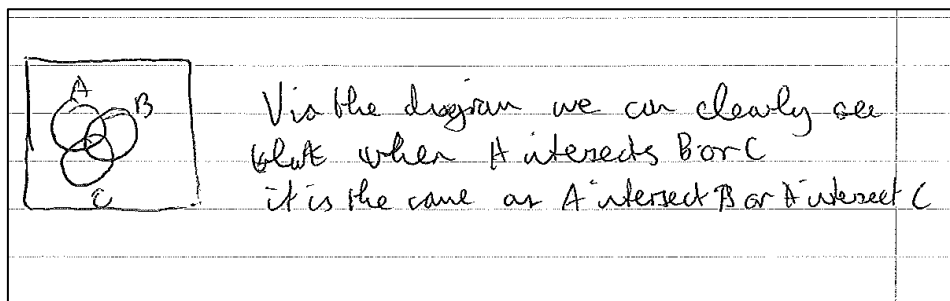 A
B
C
Via the diagram we can clearly see
that when A intersects B or C
it is the same as A intersect B or A intersect C